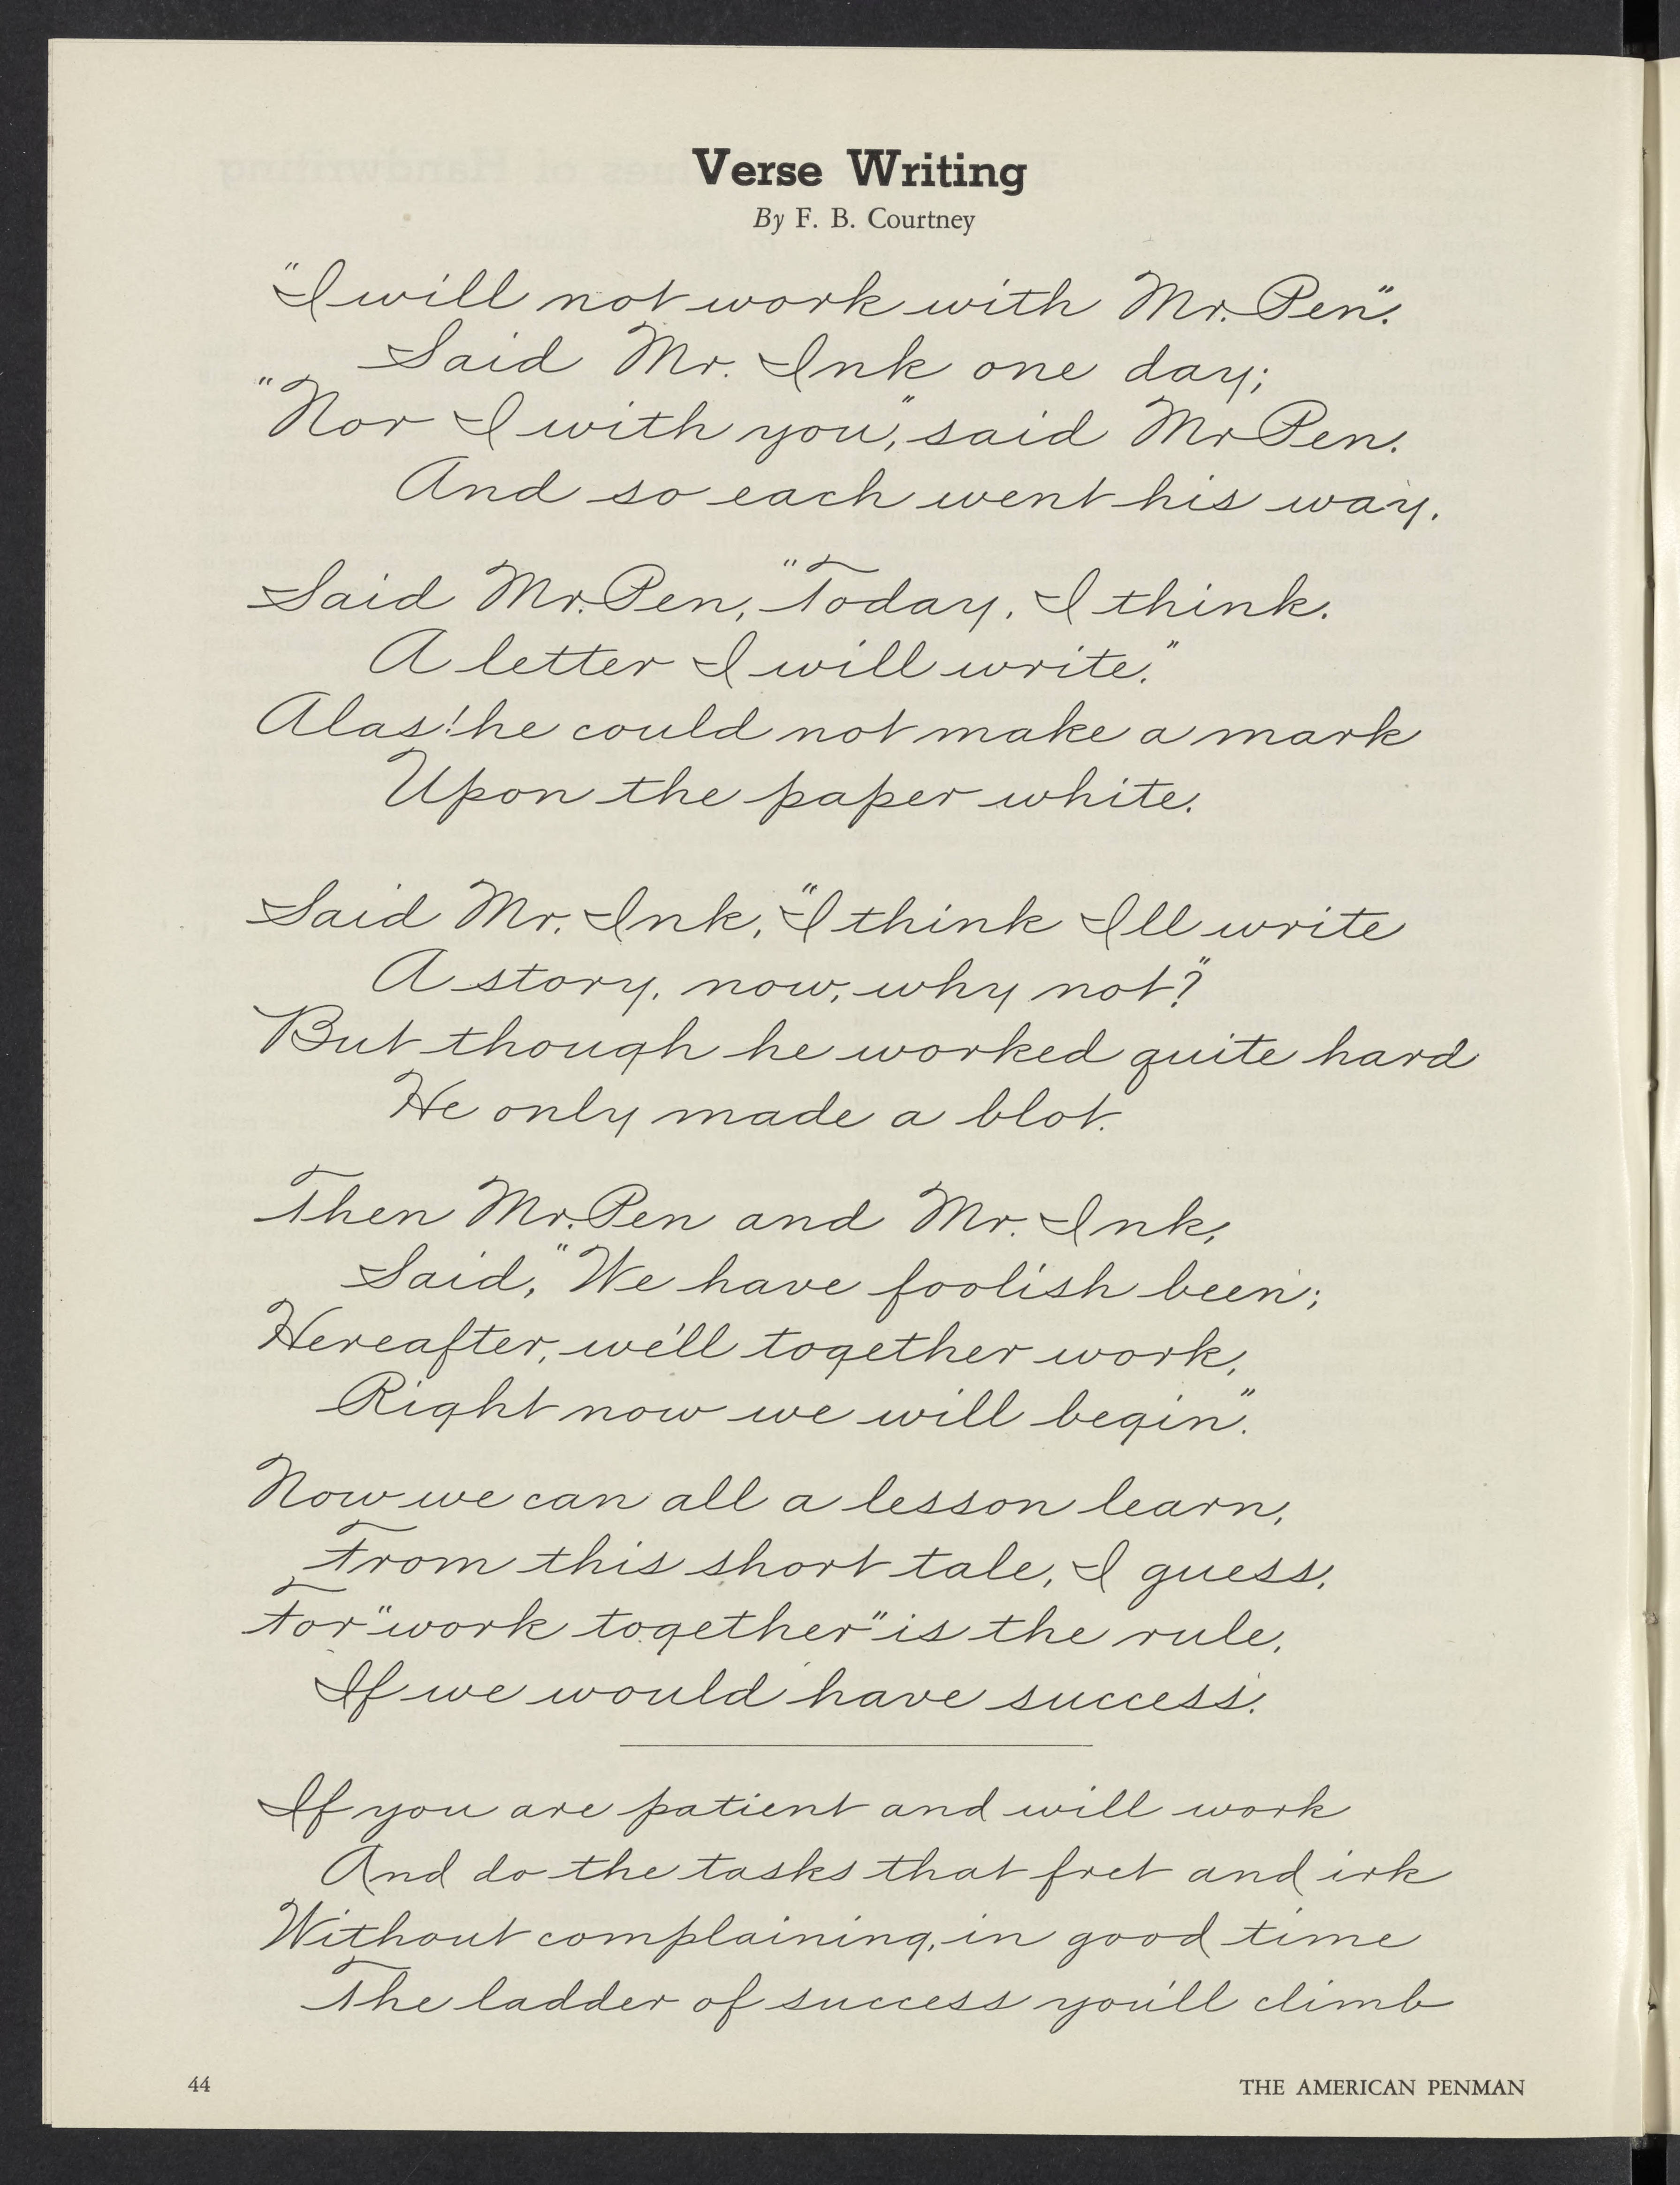 Verse Writing
By F. B. Courtney
"I will not work with Mr. Pen".
Said Mr. Ink one day;
"Nor I with you," said Mr Pen.
And so each went his way.
Said Mr. Pen, "Today, I think.
A letter I will write."
Alas! he could not make a mark
Upon the paper white.
Said Mr. Ink, "I think Ill write
A story, now, why not?"
But though he worked quite hard
He only made a blot.
Then Mr. Pen and Mr. Ink,
Said, "We have foolish been;
Hereafter, we'll together work,
Right now we will begin".
Now we can all a lesson learn,
From this short tale, I guess,
For "work together" is the rule,
If we would have success.
If you are patient and will work
And do the tasks that fret and irk
Without complaining, in good time
The ladder of success you'll climb
44 THE AMERICAN PENMAN